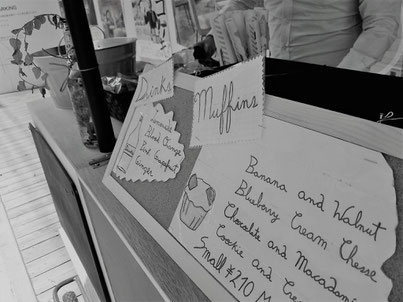 Drinks
Blood Orange
Pink Grapefruit
Ginger
Muffins
Banana and Walnut
Blueberry Cream Cheese
Chocolate and Macadami
Cookie and Cre
Small ¥270 M